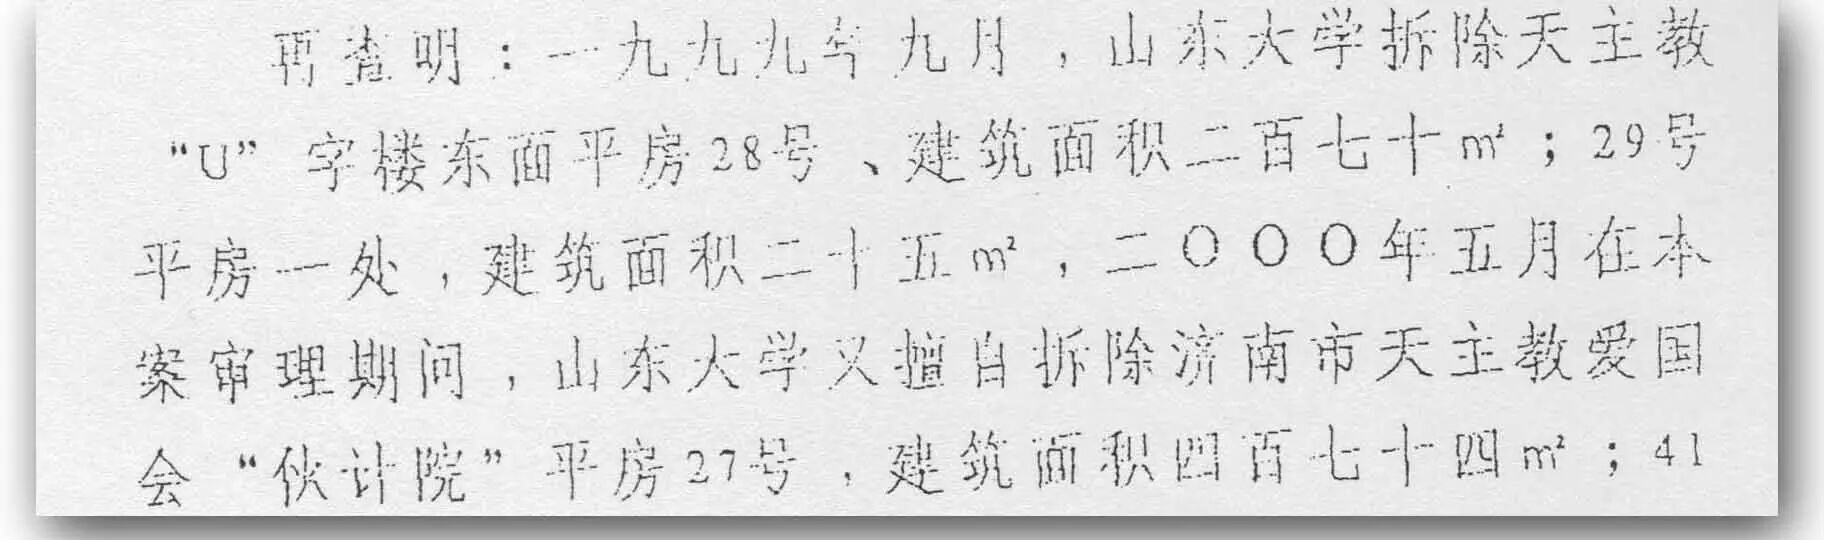 再查明：一九九九年九月，山东大学拆除天主教
“U”字楼东面平房28号、建筑面积二百七十㎡；29号
平房一处，建筑面积二十五㎡，二〇〇〇年五月在本
案审理期间，山东大学又擅自拆除济南市天主教爱国
会“伙计院”平房27号，建筑面积四百七十四㎡；41